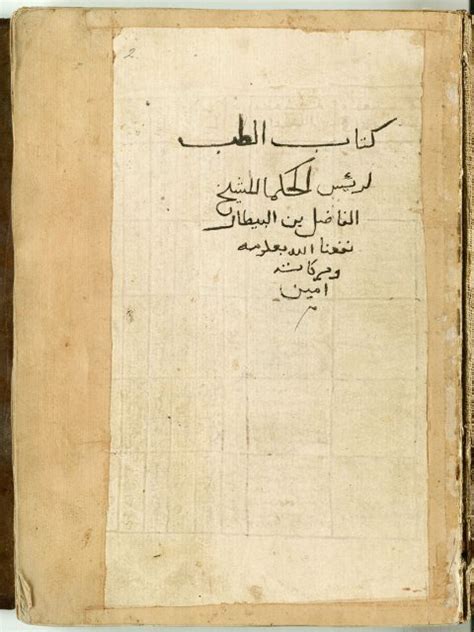 2
كتاب الطب
لرئيس الحكما الشيخ
الفاضل بن البيطار
نفعنا الله بعلومه
وبركاته
امين